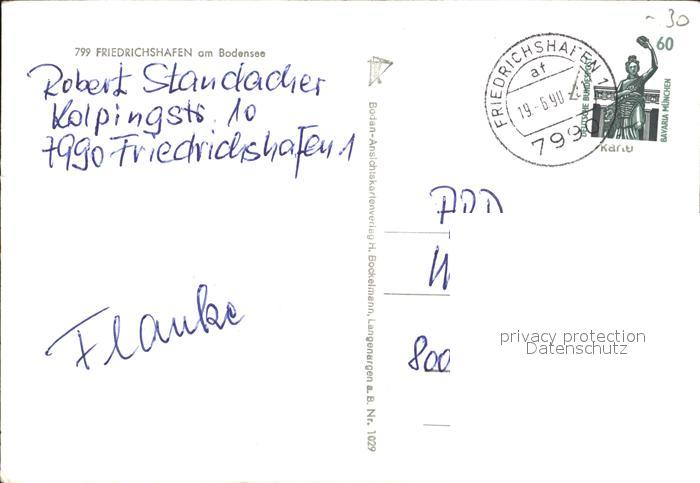 - 30
799 FRIEDRICHSHAFEN am Bodensee
Robert Standacher
Kolpingstr. 10
7990 Friedrichshafen 1
FRIEDRICHSHAFEN 1
af
19.-6.90
7990
60
DEUTSCHE BUNDESPOST
BAVARIA MÜNCHEN
Bodan-Ansichtskartenverlag H. Bockelmann, Langenargen a. B. Nr. 1029
800
privacy protection
Datenschutz